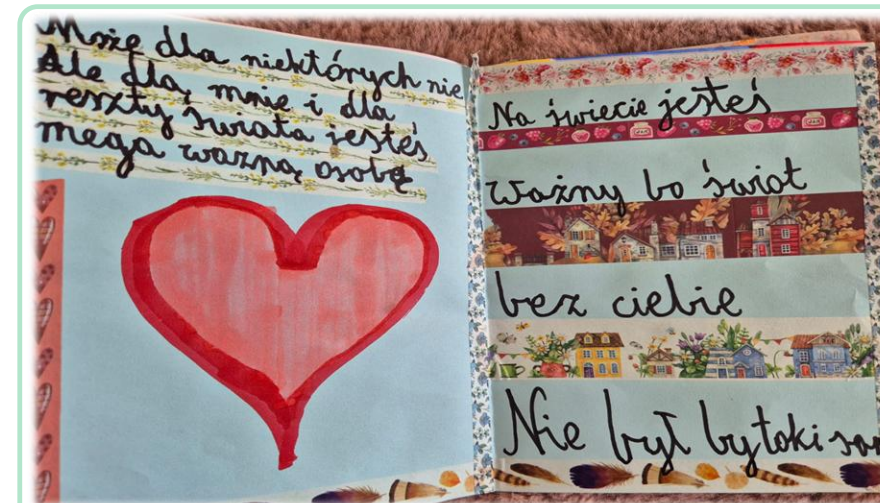 Może dla niektórych nie
Ale dla mnie i dla
reszty świata jesteś
mega ważną osobę
Na świecie jesteś
ważny bo świat
bez ciebie
Nie był by taki sam